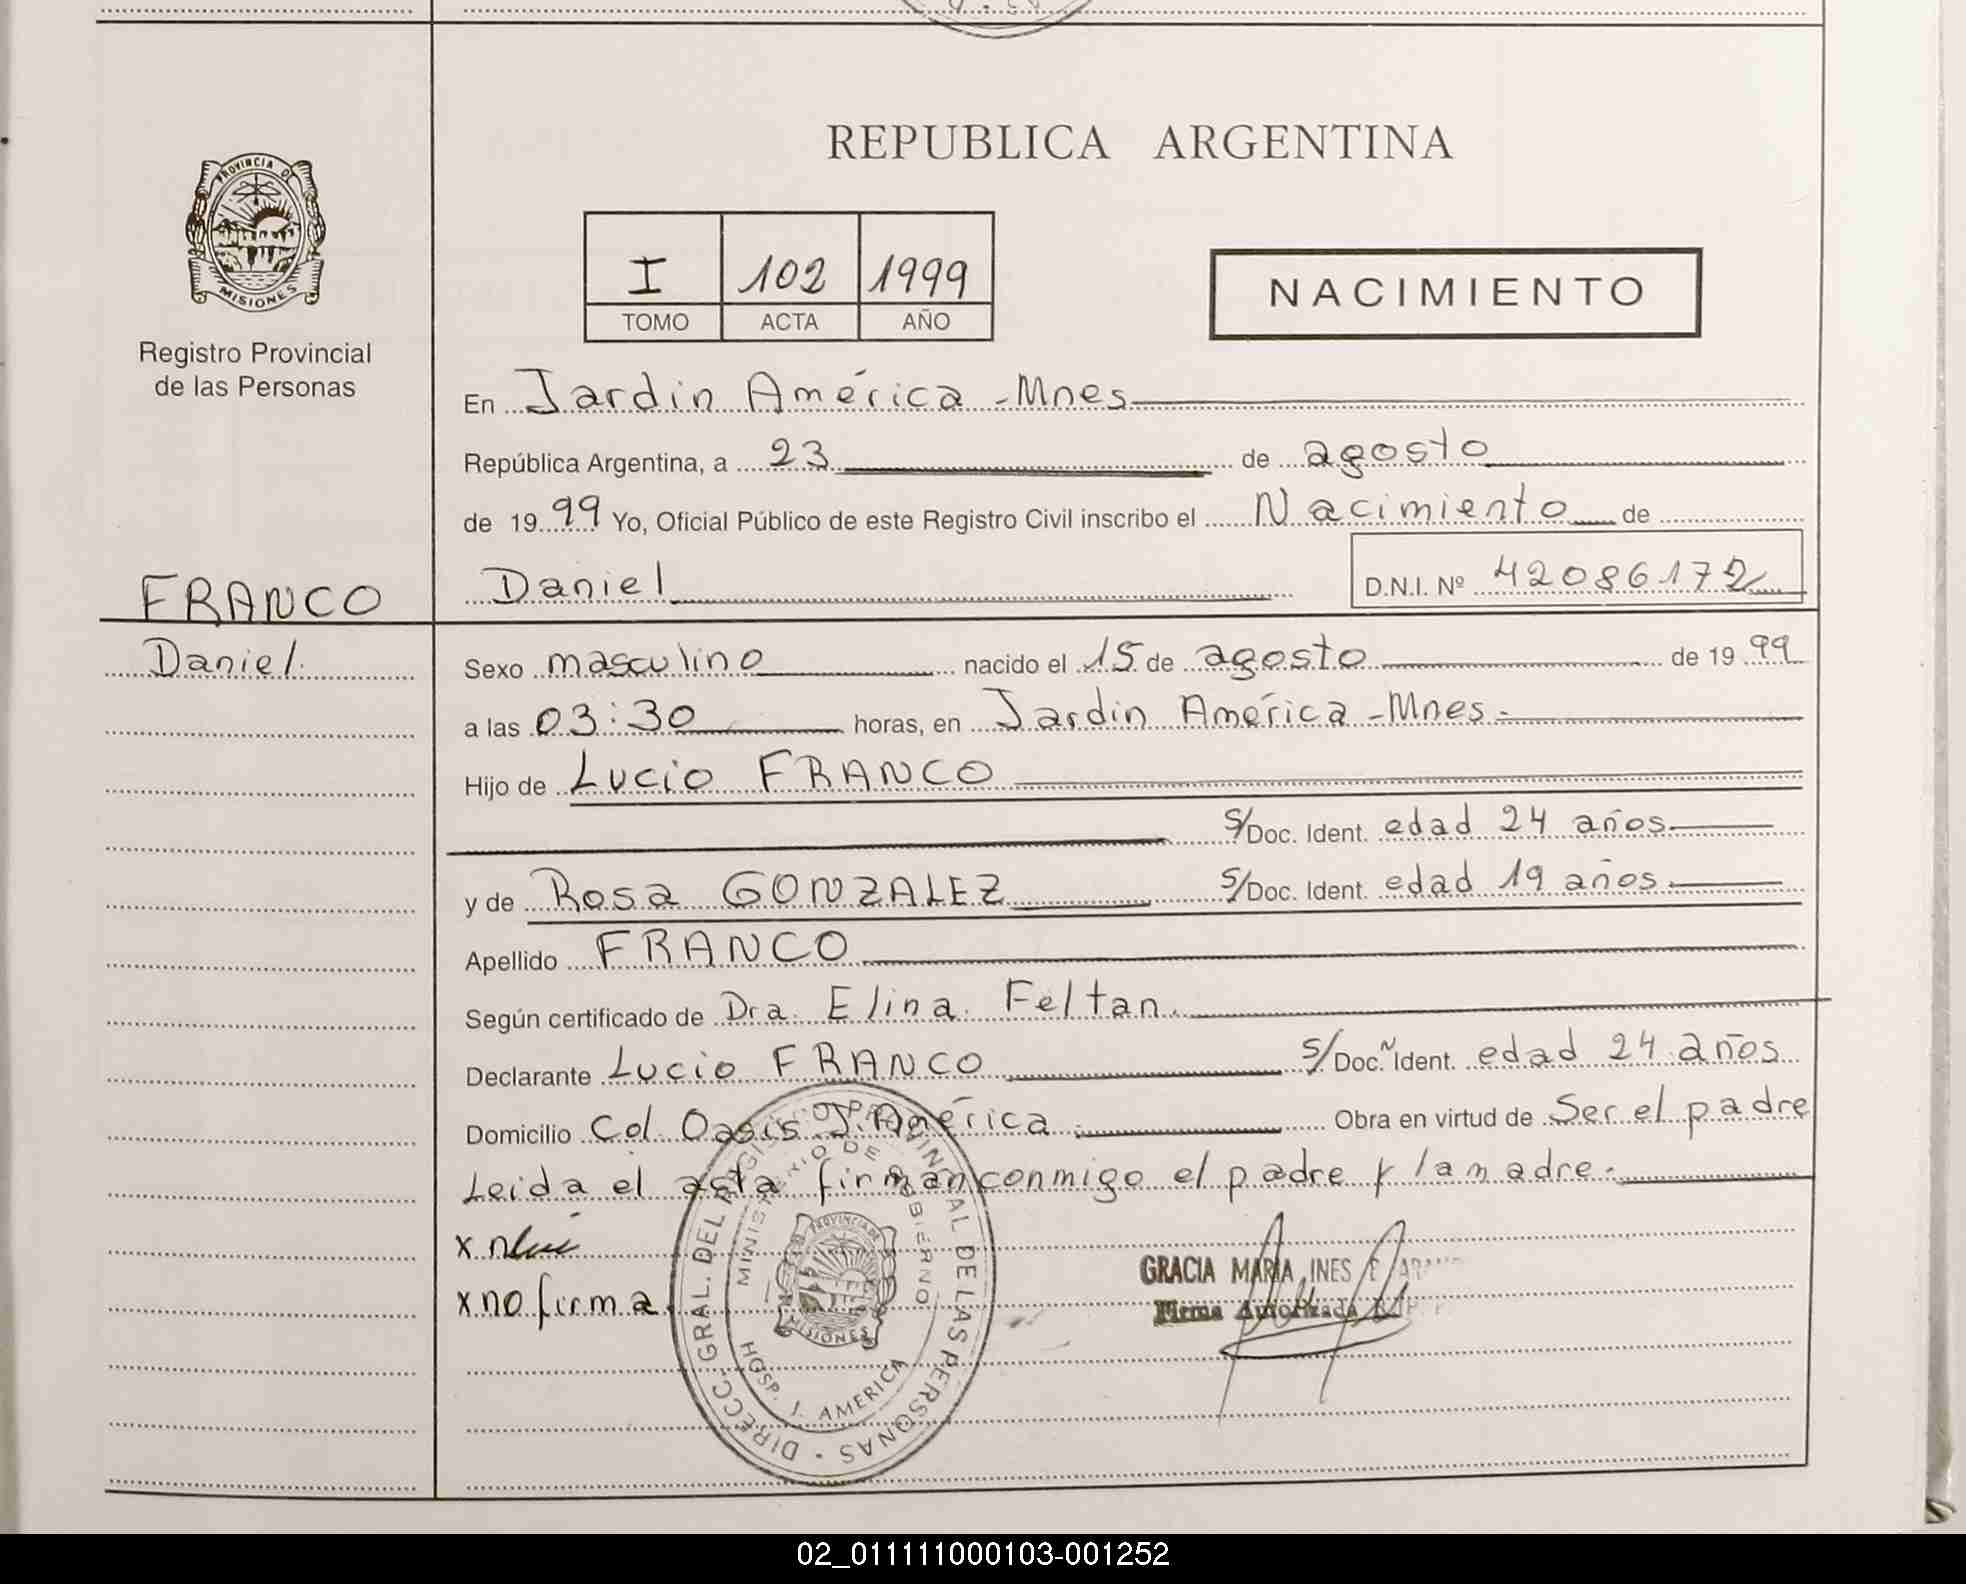 PROVINCIA DE
MISIONES
Registro Provincial
de las Personas
FRANCO
Daniel.
REPUBLICA ARGENTINA
I 102 1999
TOMO ACTA AÑO
NACIMIENTO
En Jardin América - Mnes
República Argentina, a 23 de agosto
de 1999 Yo, Oficial Público de este Registro Civil inscribo el Nacimiento de
Daniel D.N.I. Nº 42086172
Sexo masculino nacido el 15 de agosto de 1999
a las 03:30 horas, en Jardin América - Mnes.
Hijo de Lucio FRANCO
S/Doc. Ident. edad 24 años
y de Rosa GONZALEZ S/Doc. Ident. edad 19 años.
Apellido FRANCO
Según certificado de Dra. Elina Feltan.
Declarante Lucio FRANCO S/Doc. Ident. edad 24 años
Domicilio Col. Oasis J. América. Obra en virtud de Ser el padre
Leida el acta firman conmigo el padre y la madre.
x
x no firma.
DIRECC. GRAL. DEL REGISTRO PROVINCIAL DE LAS PERSONAS
MINISTERIO DE GOBIERNO
PROVINCIA DE
MISIONES
HOSP. J. AMERICA
GRACIA MARIA INES
Firma Autorizada
02_011111000103-001252